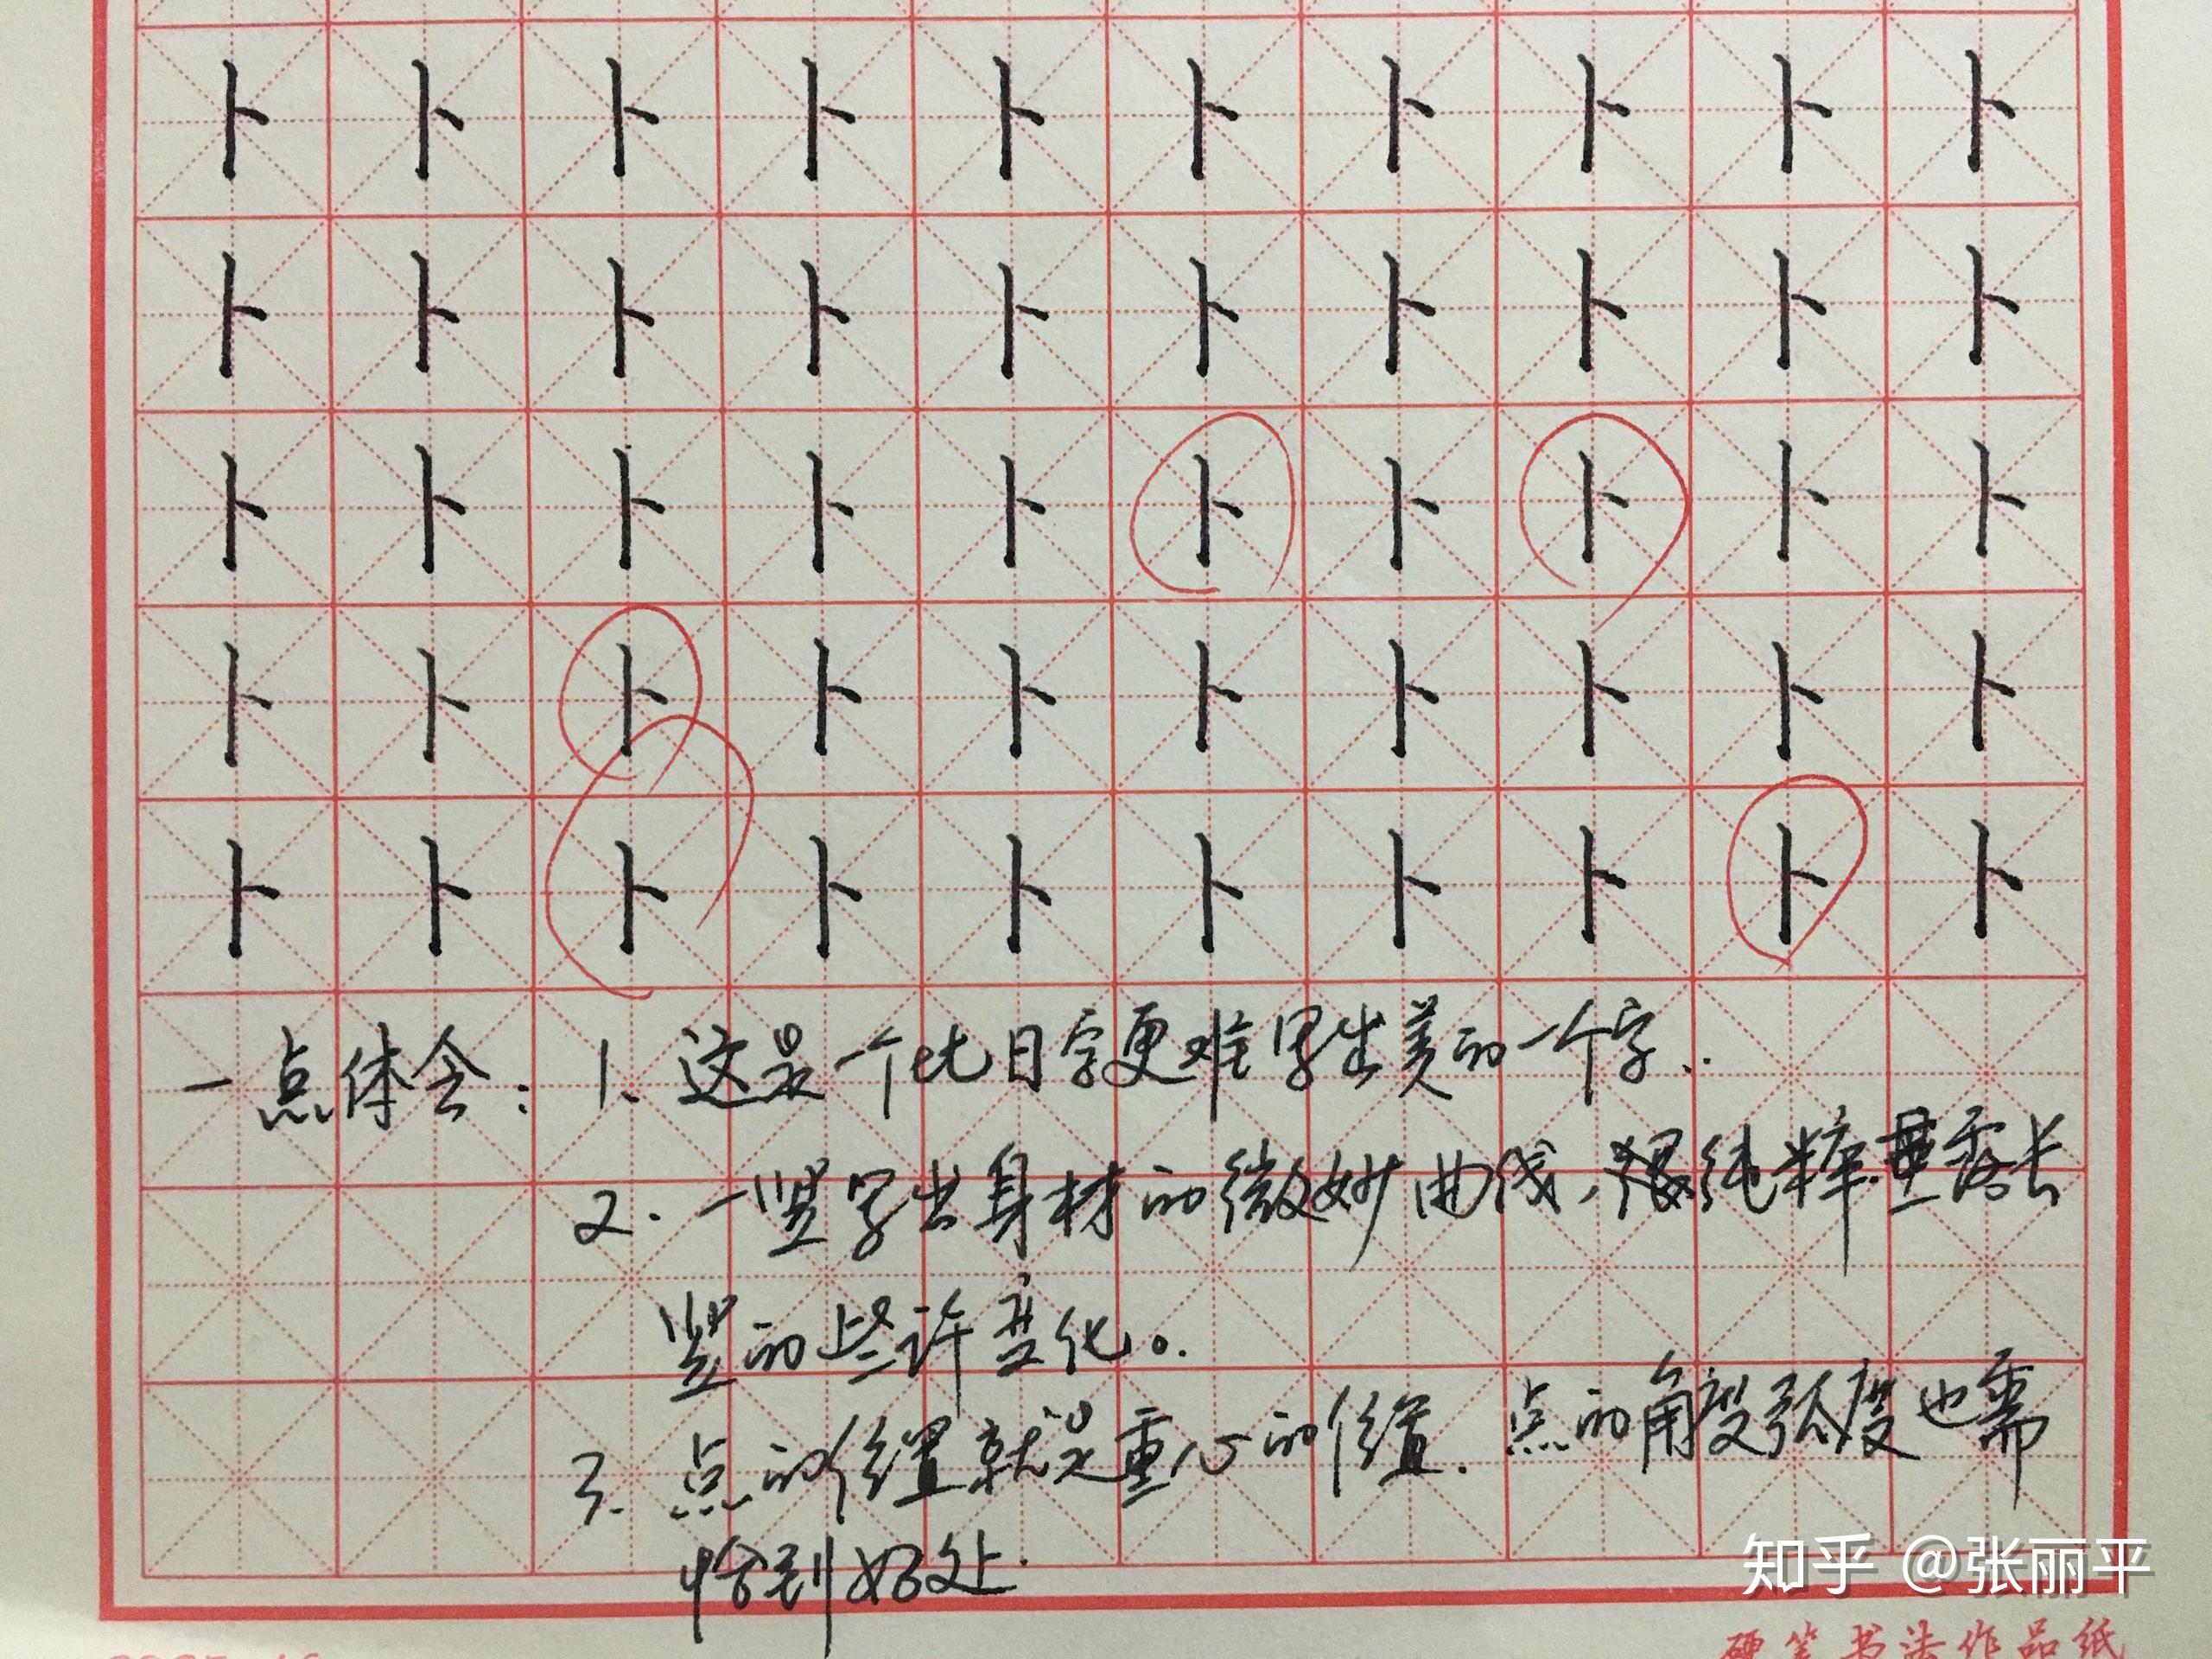 卜卜卜卜卜卜卜卜卜卜
卜卜卜卜卜卜卜卜卜卜
卜卜卜卜卜卜卜卜卜卜
卜卜卜卜卜卜卜卜卜卜
卜卜卜卜卜卜卜卜卜卜
一点体会：1、这是一个比日字更难写出美的一个字．
2．一竖写出身材的微妙曲线，很纯粹垂露长
竖的些许变化。
3．点的位置就是重心的位置．点的角度弧度也需
恰到好处．
知乎 @张丽平
硬笔书法作品纸